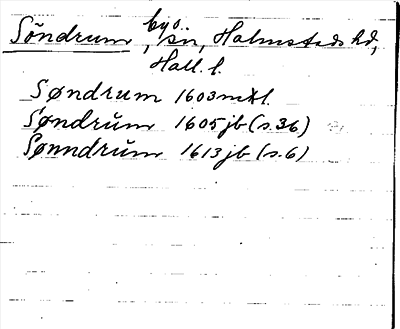 Söndrum, by o. sn, Halmstads hd,
Hall. l.
Søndrum 1603 mtl.
Søndrŭm 1605 jb (s. 36)
Sønndrŭm 1613 jb (s. 6)